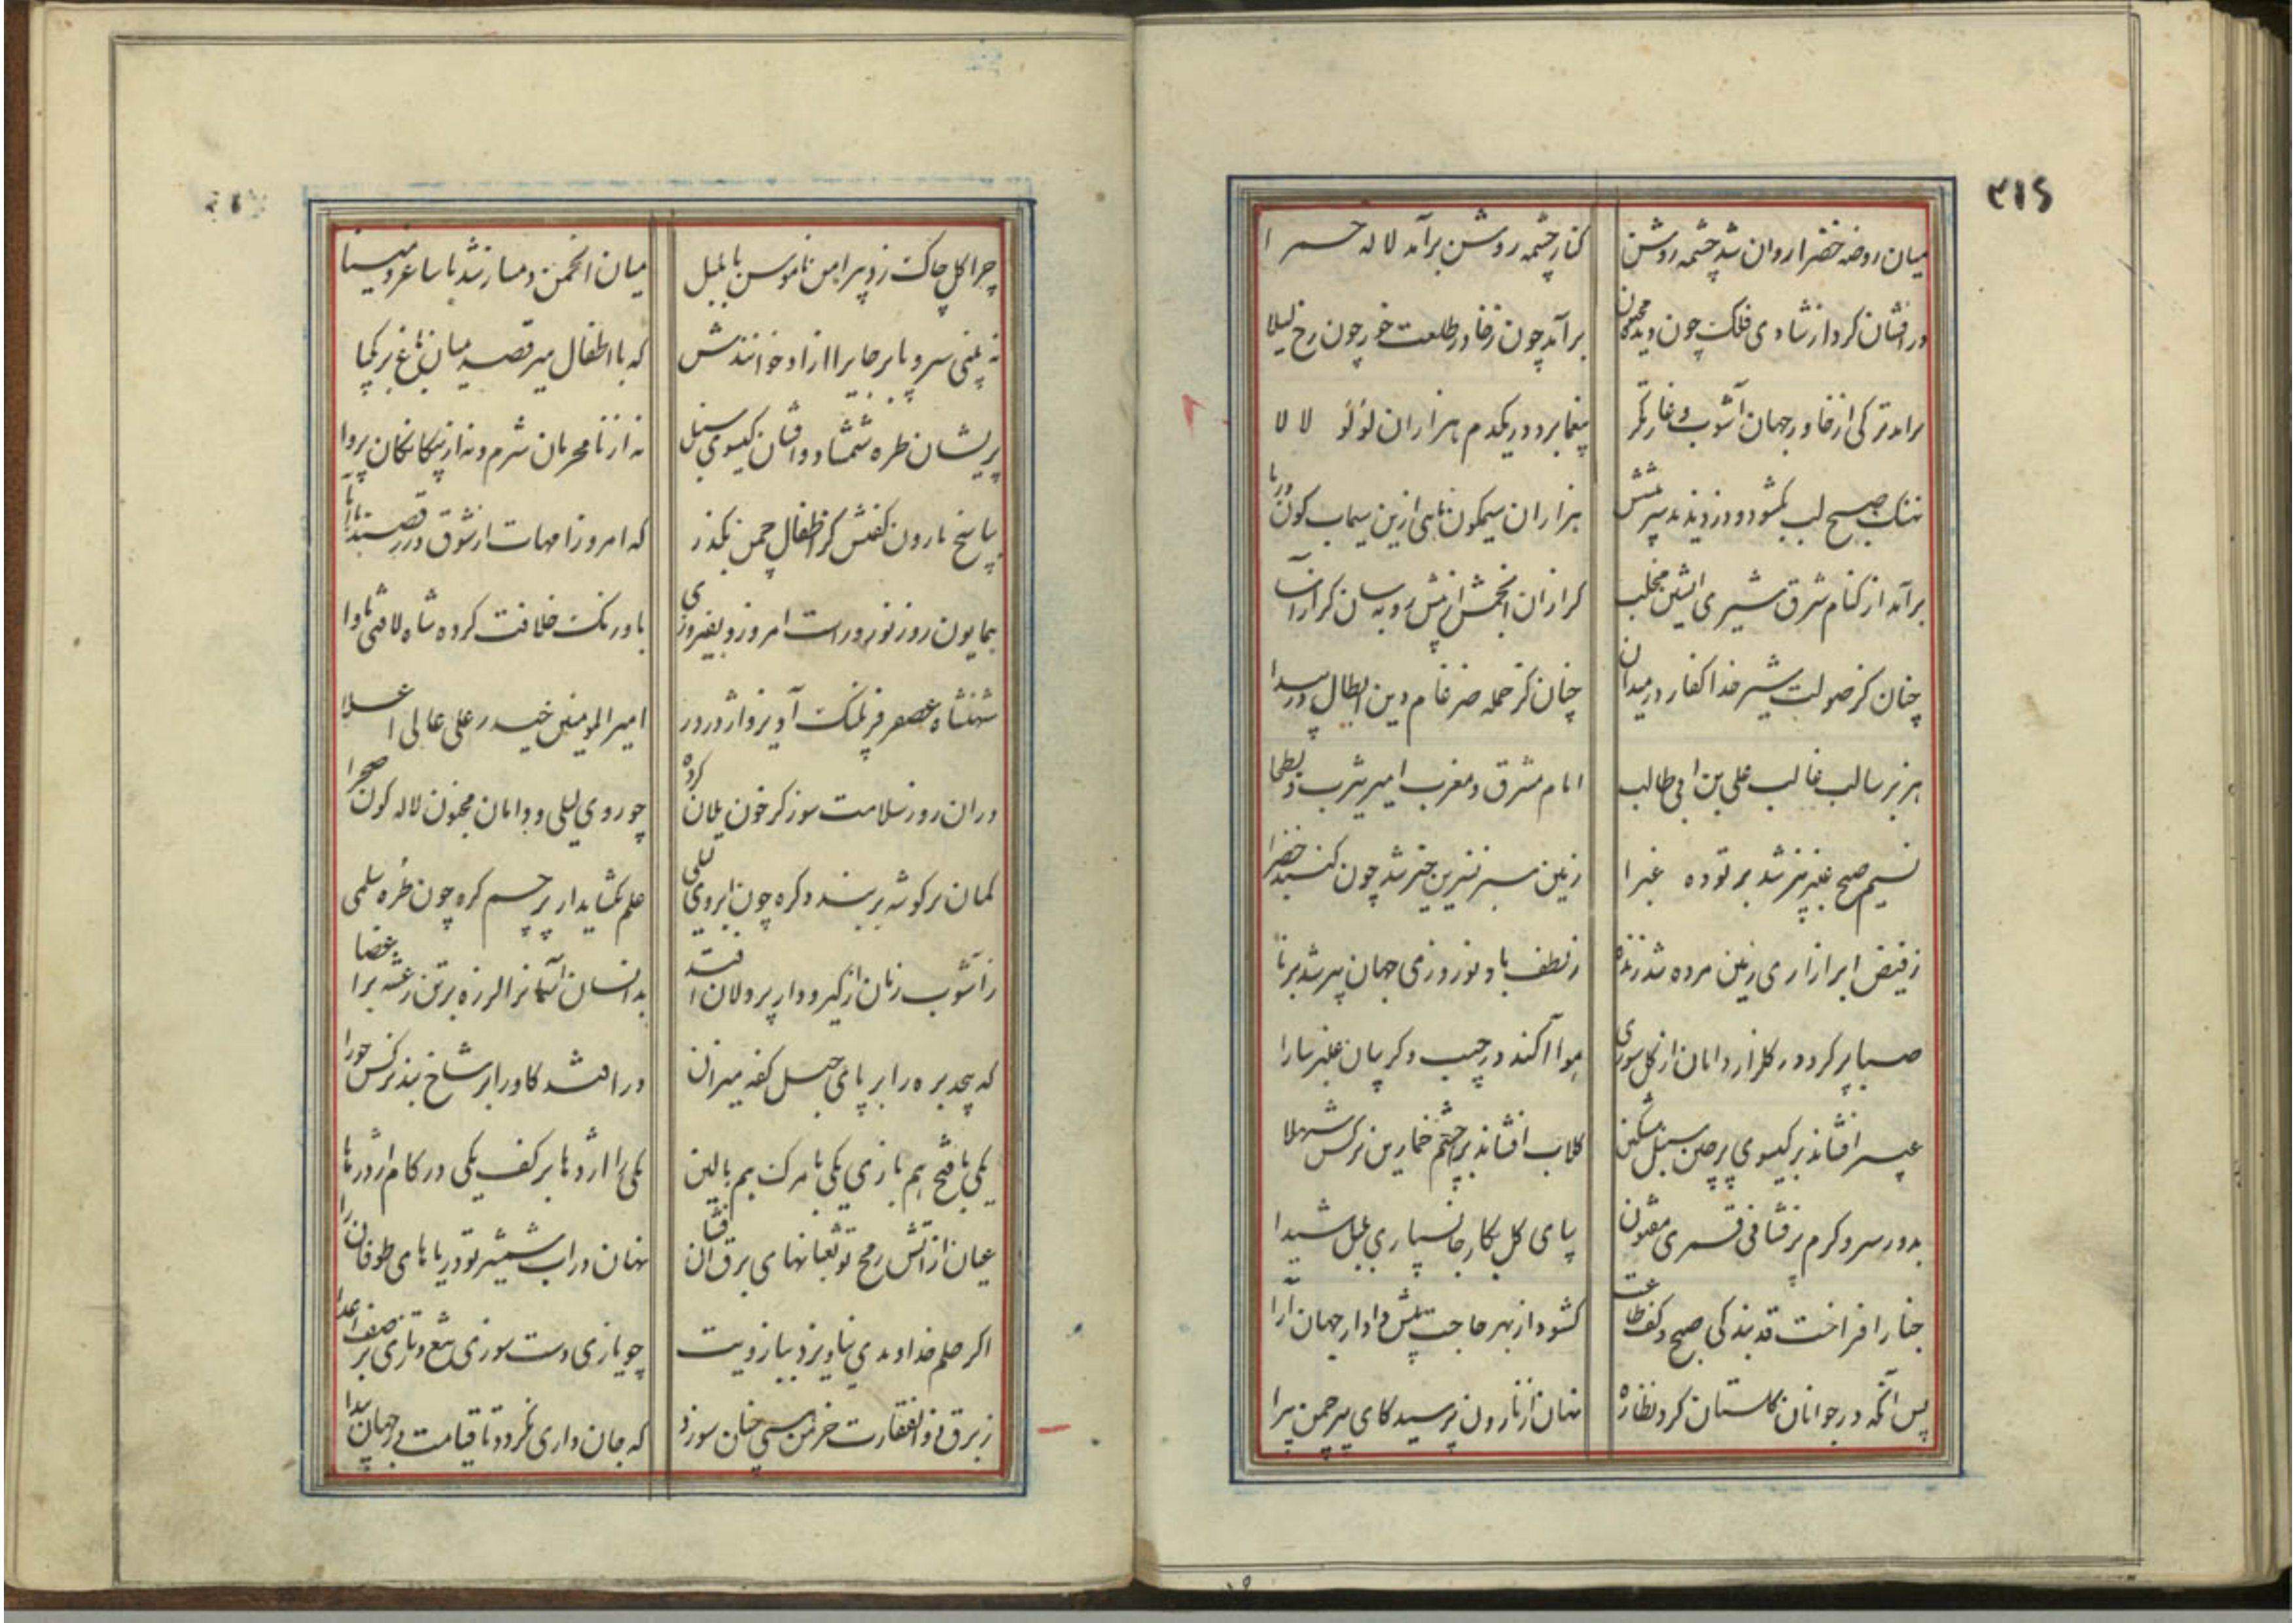 ۳۱۶
میان روضه خضرا روان شد چشمه روشن
کنار چشمه روشن برآمد لاله حمرا
در افشان کرد از شادی فلک چون دیده مجنون
برآمد چون ز خاور طلعت خور چون رخ لیلا
برامد ترکی از خاور جهان آشوب و غارتگر
بیغما برد در یکدم هزاران لؤلؤ لالا
نهنک صبح لب بکشود و دزدیدند سر پیشش
هزاران سیمکون ماهی ازین سیماب کون دریا
برآمد از کنام شرق شیری آتشین مخلب
کرازان انجمش از پیش روبه سان کرازآسا
چنان کز صولت شیر خدا کفار در میدان
چنان کز حمله ضرغام دین ابطال در بیدا
هزبر سالب غالب علی بن ابی طالب
امام مشرق و مغرب امیر یثرب و بطحا
نسیم صبح عنبربیز شد بر توده غبرا
زمین سبز نسرین خیز شد چون کنبد خضرا
ز فیض ابر ازاری زمین مرده شد زنده
ز لطف باد نوروزی جهان پیر شد برنا
صبا پر کرد در کلزار دامان از کل سوری
هوا آکند در جیب و کریبان عنبر سارا
عبیر افشاند بر کیسوی پرچین سنبل مشکین
کلاب افشاند بر چشم خمارین نرکس شهلا
بدور سرو کرم پرفشانی قمری مفتون
پای کل بکار جانسپاری بلبل شیدا
چنار افراخت قد بندکی صبح و کف طاعت
کشود از بهر حاجت پیش دادار جهان آرا
پس آنکه در جوانان کلستان کرد نظاره
نهان از نارون پرسید کای پیر چمن پیرا
چرا کل چاک زد پیراهن ناموس با بلبل
میان انجمن دمساز شد با ساغر و مینا
نه بینی سرو پابرجا برا ازاد خوانندش
که با اطفال میرقصد میان باغ بر یکپا
پریشان طره شمشاد و افشان کیسوی سنبل
نه از نامحرمان شرم و نه از بیکانکان پروا
پاسخ نارون کفتش کز اطفال چمن بکذر
که امروز امهات از شوق در رقصند با آبا
همایون روز نوروز است امروز و بفیروزی
باورنک خلافت کرده شاه لافتی ماوا
شهنشاه غضنفر فر پلنک آویز و اژدر در
امیرالمومنین حیدر علی عالی اعلا
دران روز سلامت سوز کز خون یلان کرده
چو روی لیلی و دامان مجنون لاله کون صحرا
کمان بر کوشه بر بندد کره چون ابروی لیلی
علم بکشاید از پرچم کره چون طره سلمی
ز آشوب زمان از کیر و دار پردلان افتد
بدانسان آسمانرا لرزه بر تن رعشه بر اعضا
که پیچد بره را بر پای حبل کفه میزان
در افتد کاو را بر شاخ بند ترکش جوزا
یکی با فتح هم بازی یکی با مرک هم بالین
یکی را اژدها بر کف یکی در کام اژدرها
عیان از آتش رمح تو ثعبانهای برق افشان
نهان در اب شمشیر تو دریاهای طوفان را
اکر حلم خداوندی نیاویزد ببازویت
چو یازی دست سوزی تیغ و تازی بر صف اعدا
ز برق ذوالفقارت خرمن هستی چنان سوزد
که جان داری نکردد تا قیامت در جهان پیدا